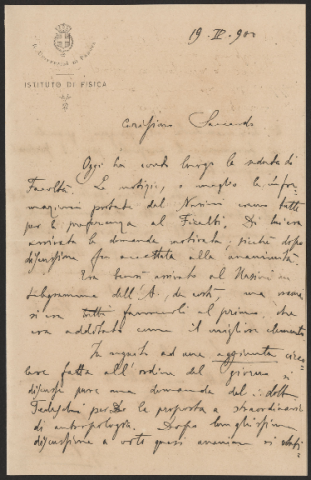 R. Università di Padova
ISTITUTO DI FISICA
19 IV 900
Carissimo Saccardo
Oggi ha avuto luogo la seduta di
Facoltà. Le notizie, o meglio le infor=
mazioni portate dal Nasini erano tutte
per la preferenza al Ficalbi. Di Lucca
arrivata la domanda motivata; pieche dopo
discussione fu accettata alla unanimità.
Era bensì arrivato al Nasini un
telegramma dell'A. da costà, ma
si era tutti favorevoli al primo, che
era additato come il migliore elemento
In seguito ad una aggiunta circo=
lare fatta all'ordine del giorno si
discusse pure una domanda del dott
Tedeschi per la proposta a straordinario
di antropologia. Dopo lunghissima
discussione a voti quasi unanimi si